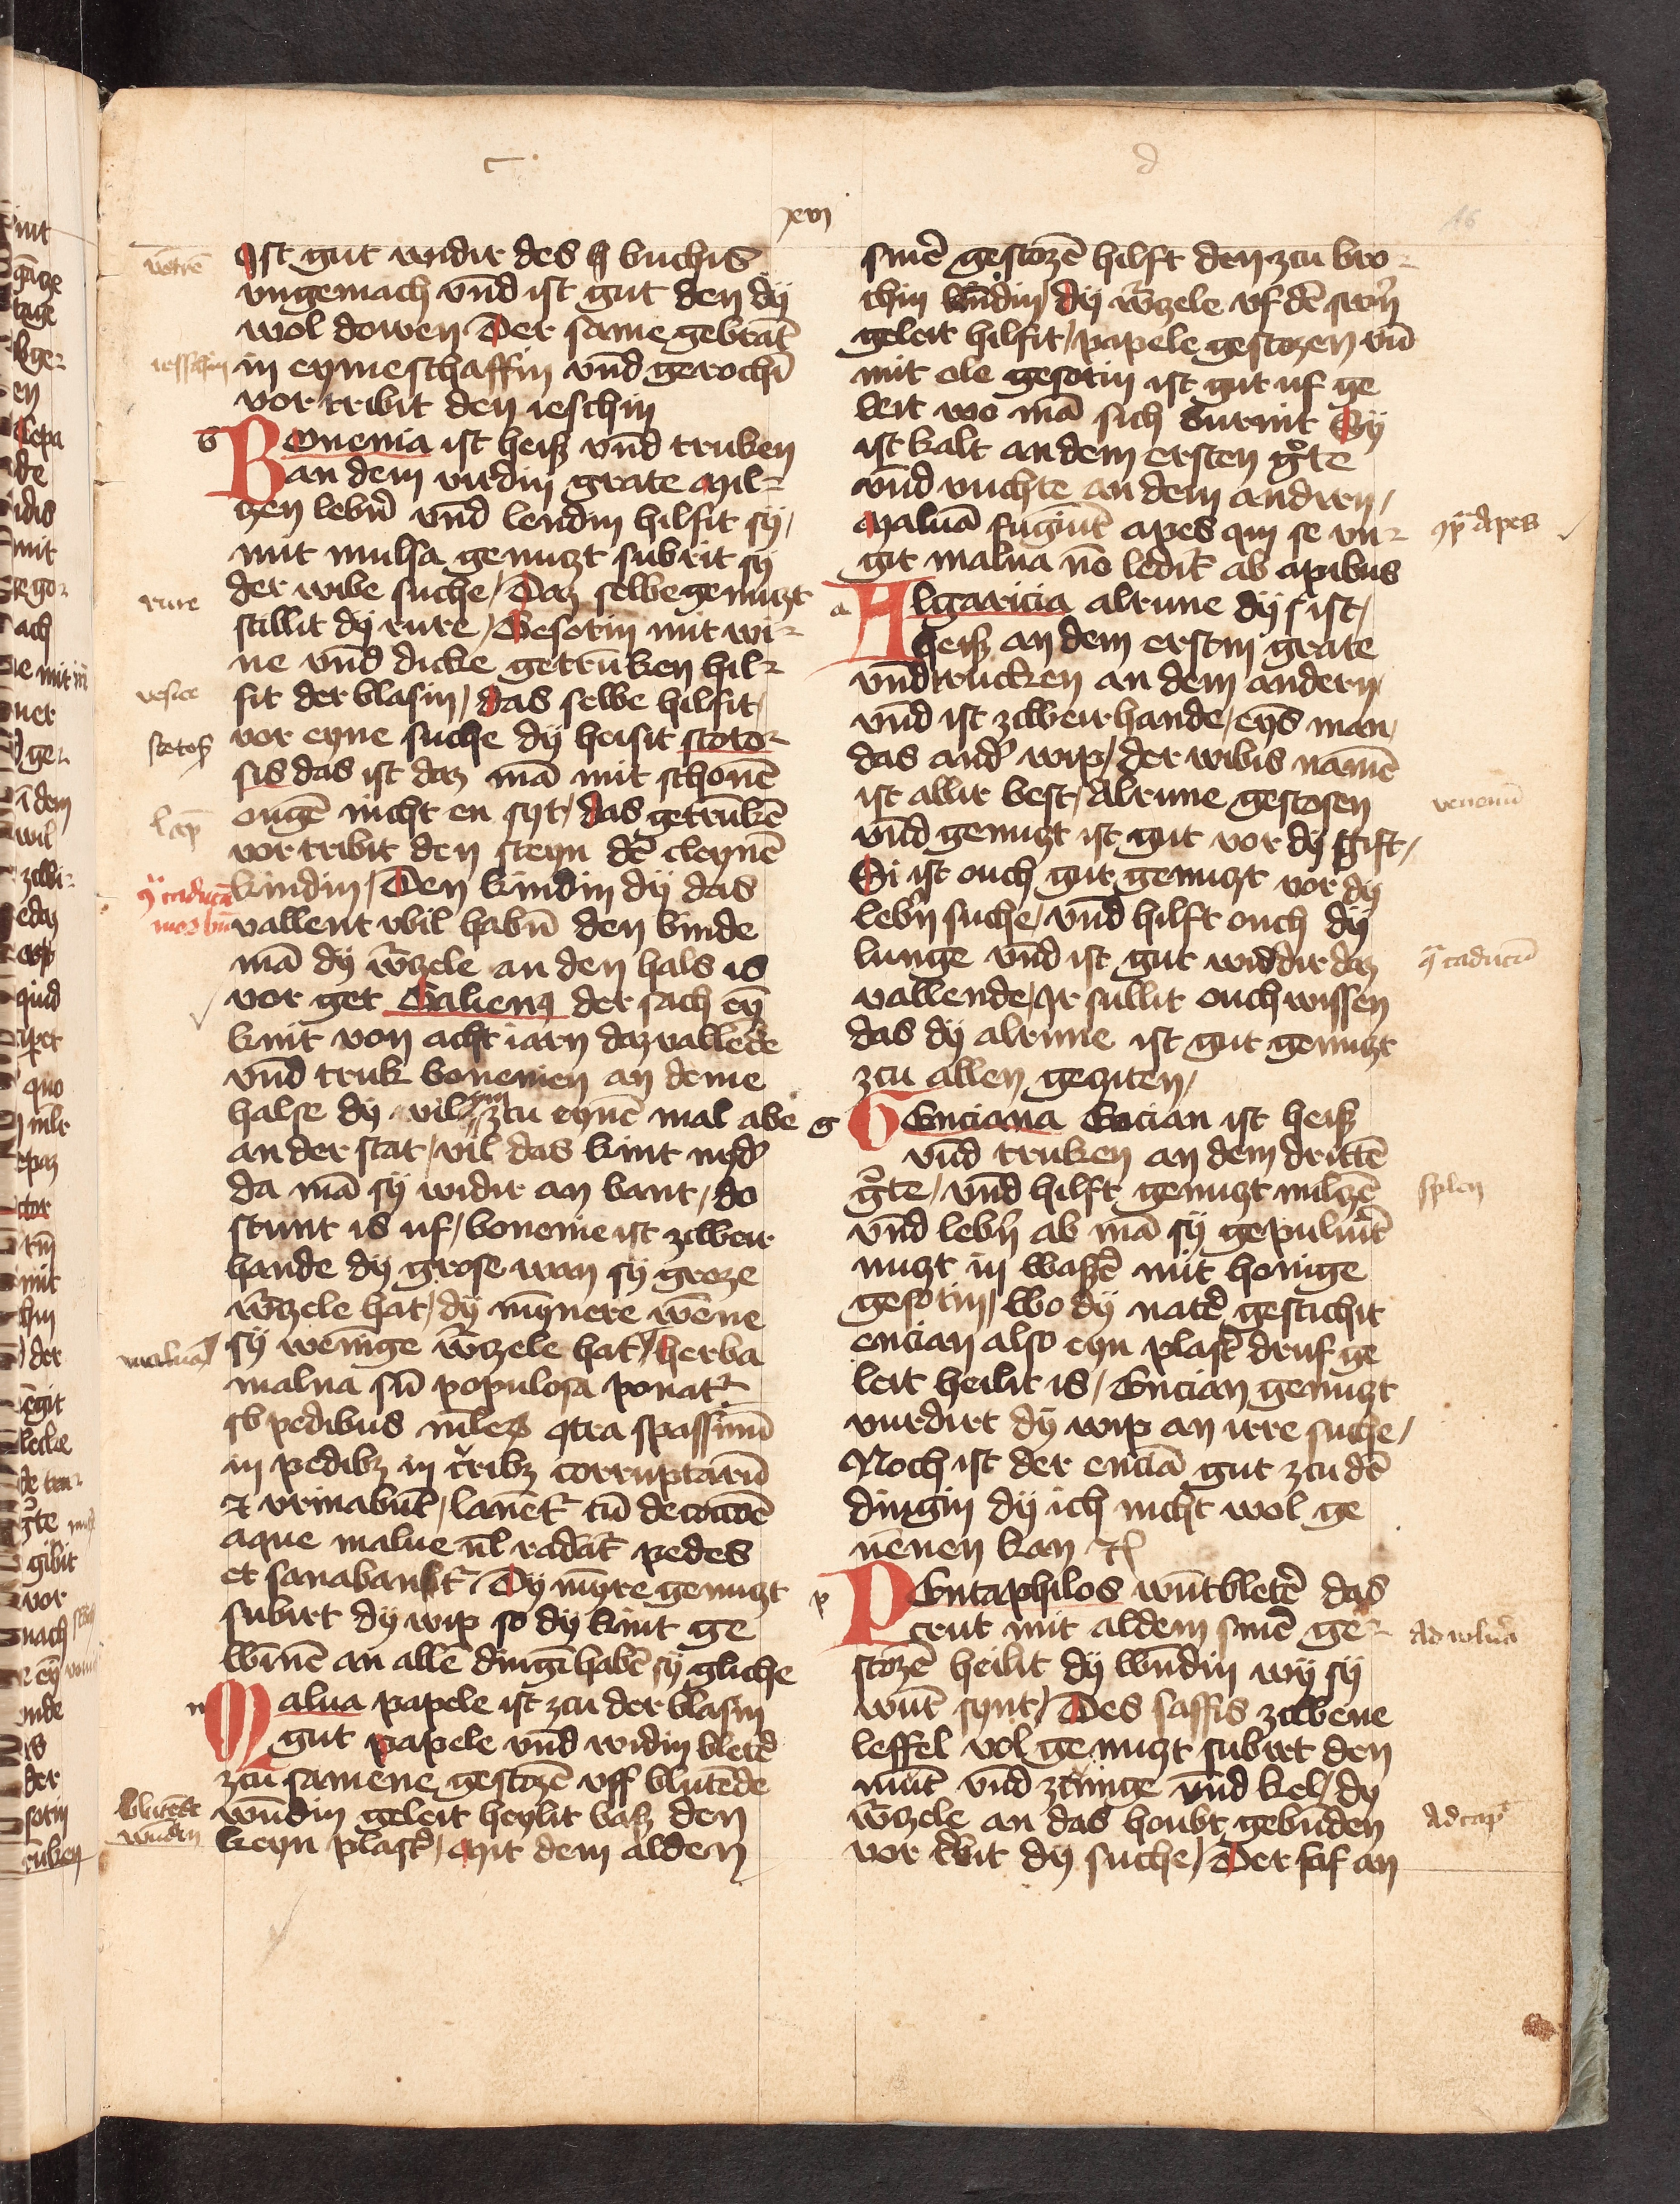 c
d
xvi
16
Ist gut widir des buchis
vngemach vnd ist gut den dÿ
wol dowen Der same gebratē
in eyme schaffin vnd gerochī
vor tribit den ieschin
Bonenia ist heiß vnd truken
an dem virdin grate Mil-
tzen lebīr vnd lendin hilfit sÿ /
mit mulsa genutzt subrit sÿ
der wibe suche / Daz selbe genutzt
stillit dÿ rure / Gesotin mit wi-
ne vnd dicke getrūken hil-
fit der blasin / das selbe hilfit /
vor eyne suche dÿ heisit stoto-
sis das ist daz mā mit schonē
ougē nicht en syt / das getrūkē
vor tribit den steyn dē cleynē
kindin / Den kindin dÿ das
vallent wil habn̄ den binde
mā dÿ w̄tzele an den hals is
vor get Galienꝰ der sach eȳ
kint von acht iarn daz vallēde
vnd truk bonenien an deme
halse dÿ vil ym zcu eynē mal abe
an der stat / vil das kint nyd̄
da mā sÿ widir an bant / do
stunt is uf / bonenie ist zcweir
hande dÿ grose wan sÿ groze
w̄tzele hat / dÿ mynere wēne
sÿ wenīge w̄tzele hat / herba
malua sū populosa ponat᷑
sb pedibus ml̄er ꝯtra spassimū
in pedibꝫ in c̄ribꝫ corruptarū
⁊ vrinabūt / lauēt᷑ cū decoctōe
aque malue vl̄ radāt᷑ pedes
et sanabant᷑ Dÿ myre genutzt
subirt dÿ wip so dÿ kint ge
winē an allē dingī habē sÿ gliche
Malua papele ist zcu der blasin
gut papele vnd widin bletd̄
zcu samene gestozē vff blutēde
wūdin geleit heylit baß den
keyn plast᷑ / Mit dem alden
smē gestozē hilft den zcu bro-
chin wūdin / dÿ w̄tzele uf dē swn̄
geleit hilfit / papele gestozen vn̄
mit ole gesotin ist gut uf ge
leit wo mā sich burnit Sÿ
ist kalt an dem ersten gͣte
vnd vuchte an dem andirn /
Maluā fugiūt apes qui se vn-
git malua nō ledit᷑ ab apibus
Algaricia alrune dÿ ist /
heiß an dem erstin grate
vnd trucken an dem andern /
vnd ist zcweirhande / eyns man /
das and̄ wip / der wibis namē
ist allir best / Alrune gestosen
vnd genutzt ist gut vor dÿ gift /
Si ist ouch gut genutzt vor dÿ
lebn̄ suche / vnd hilft ouch dÿ
lunge vnd ist gut widdir daz
vallende / Ir sullit ouch wissen
das dÿ alrune ist gut genutzt
zcu allen gezciten /
Genciana Encian ist heiß
vnd truken an dem drittē
gͣte / vnd hilft genutzt miltzē
vnd lebn̄ ab mā sÿ gepuluit᷑
nutzt in waßē mit honige
gesotin / wo dÿ natd̄ gestichit
encian also eyn plast᷑ druf ge
leit heilit is / Encian genutzt
vurdirt dÿ wip an irre suche /
Noch ist der enciā gut zcu dē
dingin dÿ ich nicht wol ge
nēnen kan ⁊c̄
Pentaphilos wūtbletē das
crut mit aldem smē ge-
stozē heilit dÿ wūdin wÿ sÿ
wūt synt / Des saffis zcwene
leffel vol genutzt subirt den
mūt vnd zcunge vnd kel / dy
w̄tzele an das houbt gebūden
vor t᷑bit dÿ suche / Der saf an
ieschin
rure
vesice
stotos̄
lap̄
ꝯͣ caducū
morbū
maluā
blutēde
wūdin
ꝯͣ apes
venenū
ꝯͣ caducū
splen
Ad vulnā
Ad cap̄